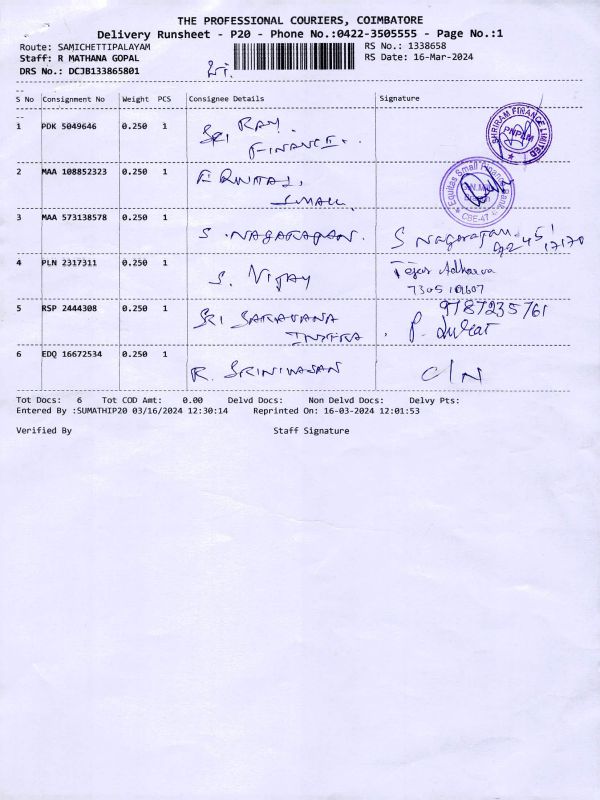 THE PROFESSIONAL COURIERS, COIMBATORE
Delivery Runsheet - P20 - Phone No.:0422-3505555 - Page No.:1
Route: SAMICHETTIPALAYAM
RS No.: 1338658
Staff: R MATHANA GOPAL
RS Date: 16-Mar-2024
DRS No.: DCJB133865801
S No Consignment No Weight PCS Consignee Details Signature
1 PDK 5049646 0.250 1 SRI RAM
FINANCE. SHRIRAM FINANCE LIMITED
2 MAA 108852323 0.250 1 Equitas Small Finance Bank
SMALL CBE-47
3 MAA 573138578 0.250 1 S. NAGARAJAN. S Nagarajan
4 PLN 2317311 0.250 1 S. VIJAY Tejas
7305
5 RSP 2444308 0.250 1 SRI SARAVANA 9787235761
INDTRA P.
6 EDQ 16672534 0.250 1 R. SRINIVASAN C/N
Tot Docs: 6 Tot COD Amt: 0.00 Delvd Docs: Non Delvd Docs: Delvy Pts:
Entered By :SUMATHIP20 03/16/2024 12:30:14 Reprinted On: 16-03-2024 12:01:53
Verified By Staff Signature